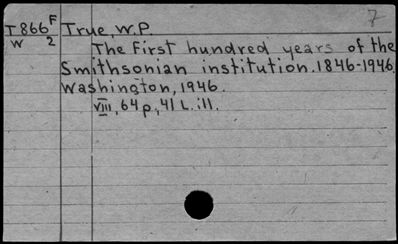 7
T866 F True, W.P.
W 2 The First hundred years of the
Smithsonian institution. 1846-1946.
Washington, 1946.
VIII, 64 p., 41 L. ill.